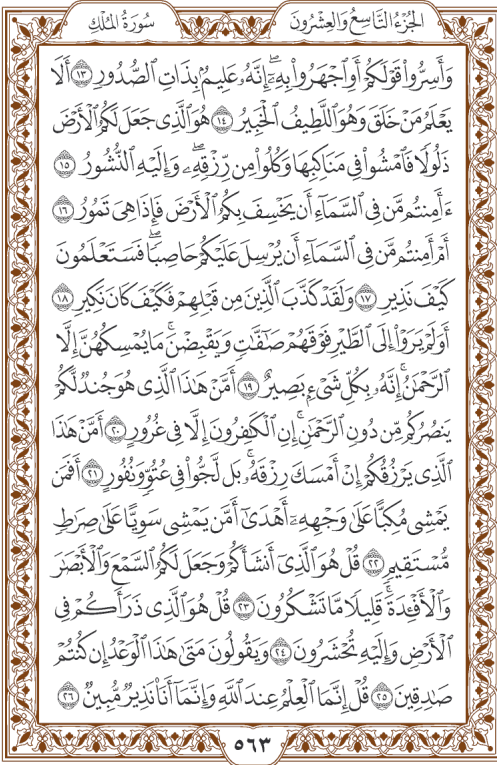 الجُزْءُ التَّاسِعُ وَالعِشْرُونَ
سُورَةُ المُلْكِ
وَأَسِرُّواْ قَوْلَكُمْ أَوِ ٱجْهَرُواْ بِهِۦٓۖ إِنَّهُۥ عَلِيمُۢ بِذَاتِ ٱلصُّدُورِ ١٣ أَلَا
يَعْلَمُ مَنْ خَلَقَ وَهُوَ ٱللَّطِيفُ ٱلْخَبِيرُ ١٤ هُوَ ٱلَّذِى جَعَلَ لَكُمُ ٱلْأَرْضَ
ذَلُولًا فَٱمْشُواْ فِى مَنَاكِبِهَا وَكُلُواْ مِن رِّزْقِهِۦۖ وَإِلَيْهِ ٱلنُّشُورُ ١٥
ءَأَمِنتُم مَّن فِى ٱلسَّمَآءِ أَن يَخْسِفَ بِكُمُ ٱلْأَرْضَ فَإِذَا هِىَ تَمُورُ ١٦
أَمْ أَمِنتُم مَّن فِى ٱلسَّمَآءِ أَن يُرْسِلَ عَلَيْكُمْ حَاصِبًاۖ فَسَتَعْلَمُونَ
كَيْفَ نَذِيرِ ١٧ وَلَقَدْ كَذَّبَ ٱلَّذِينَ مِن قَبْلِهِمْ فَكَيْفَ كَانَ نَكِيرِ ١٨
أَوَلَمْ يَرَوْاْ إِلَى ٱلطَّيْرِ فَوْقَهُمْ صَٰٓفَّٰتٍ وَيَقْبِضْنَۚ مَا يُمْسِكُهُنَّ إِلَّا
ٱلرَّحْمَٰنُۚ إِنَّهُۥ بِكُلِّ شَىْءِۭ بَصِيرٌ ١٩ أَمَّنْ هَٰذَا ٱلَّذِى هُوَ جُندٌ لَّكُمْ
يَنصُرُكُم مِّن دُونِ ٱلرَّحْمَٰنِۚ إِنِ ٱلْكَٰفِرُونَ إِلَّا فِى غُرُورٍ ٢٠ أَمَّنْ هَٰذَا
ٱلَّذِى يَرْزُقُكُمْ إِنْ أَمْسَكَ رِزْقَهُۥۚ بَل لَّجُّواْ فِى عُتُوٍّ وَنُفُورٍ ٢١ أَفَمَن
يَمْشِى مُكِبًّا عَلَىٰ وَجْهِهِۦٓ أَهْدَىٰٓ أَمَّن يَمْشِى سَوِيًّا عَلَىٰ صِرَٰطٍ
مُّسْتَقِيمٍ ٢٢ قُلْ هُوَ ٱلَّذِىٓ أَنشَأَكُمْ وَجَعَلَ لَكُمُ ٱلسَّمْعَ وَٱلْأَبْصَٰرَ
وَٱلْأَفْـِٔدَةَۖ قَلِيلًا مَّا تَشْكُرُونَ ٢٣ قُلْ هُوَ ٱلَّذِى ذَرَأَكُمْ فِى
ٱلْأَرْضِ وَإِلَيْهِ تُحْشَرُونَ ٢٤ وَيَقُولُونَ مَتَىٰ هَٰذَا ٱلْوَعْدُ إِن كُنتُمْ
صَٰدِقِينَ ٢٥ قُلْ إِنَّمَا ٱلْعِلْمُ عِندَ ٱللَّهِ وَإِنَّمَآ أَنَا۠ نَذِيرٌ مُّبِينٌ ٢٦
٥٦٣